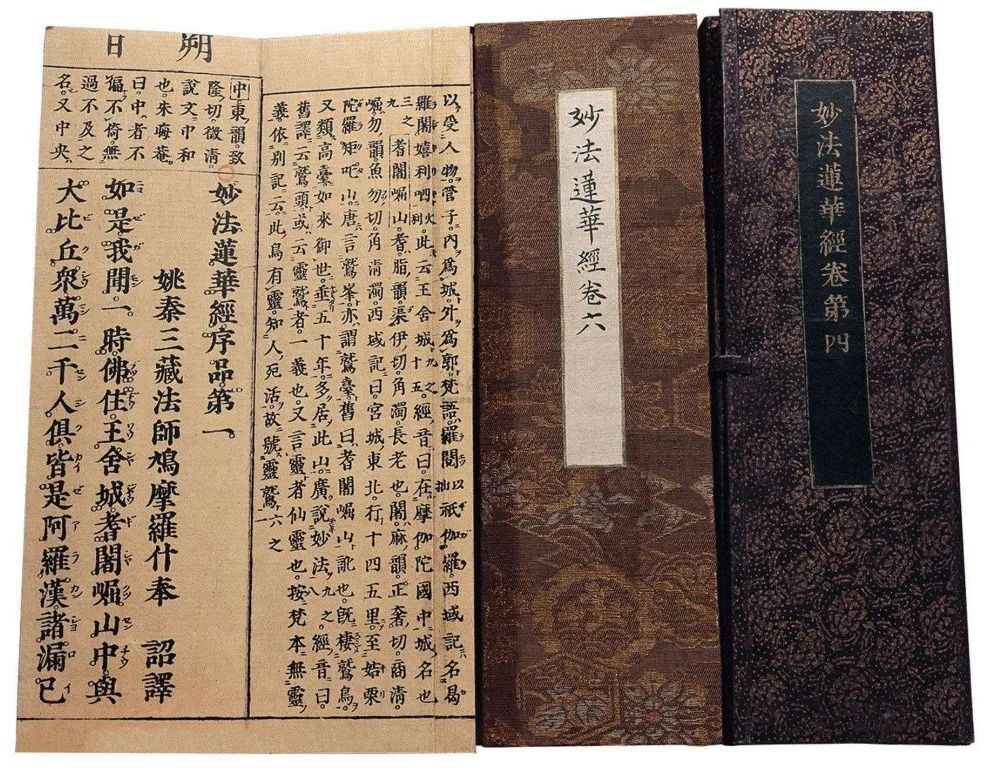 朔日
以受人物。管子。內爲城。外爲郭。梵語。羅閱祇伽羅。西域記。名曷
羅闍嬉利呬。此云王舍城。經音曰。在摩伽陀國中城名也
三之九耆闍崛山。耆脂韻渠伊切。角濁。長老也。闍麻韻。正奢切。商淸。
崛勿韻魚勿切。角淸濁。西域記曰。宮城東北。行十四五里。至姞栗
陀羅矩吒山。唐言鷲峯。亦謂鷲臺。舊曰耆闍崛山訛也。旣棲鷲鳥。
又類高臺。如來御世。垂五十年。多居此山。廣說妙法。八九之經音曰。
舊譯云鷲頭。或云靈鷲者。一義也。又言靈者仙靈也。按梵本無靈
義依別記云。此鳥有靈。知人死活。故號靈鷲。一六之
中東韻致
隆切。徵淸。
說文。中和
也。朱晦菴。
曰。中者不
偏不倚無
過不及之
名。又中央。
妙法蓮華經序品第一。
姚秦三藏法師鳩摩羅什奉 詔譯
如是我聞。一時佛住王舍城。耆闍崛山中。與
大比丘衆。萬二千人俱。皆是阿羅漢。諸漏已
妙法蓮華經卷六
妙法蓮華經卷第四